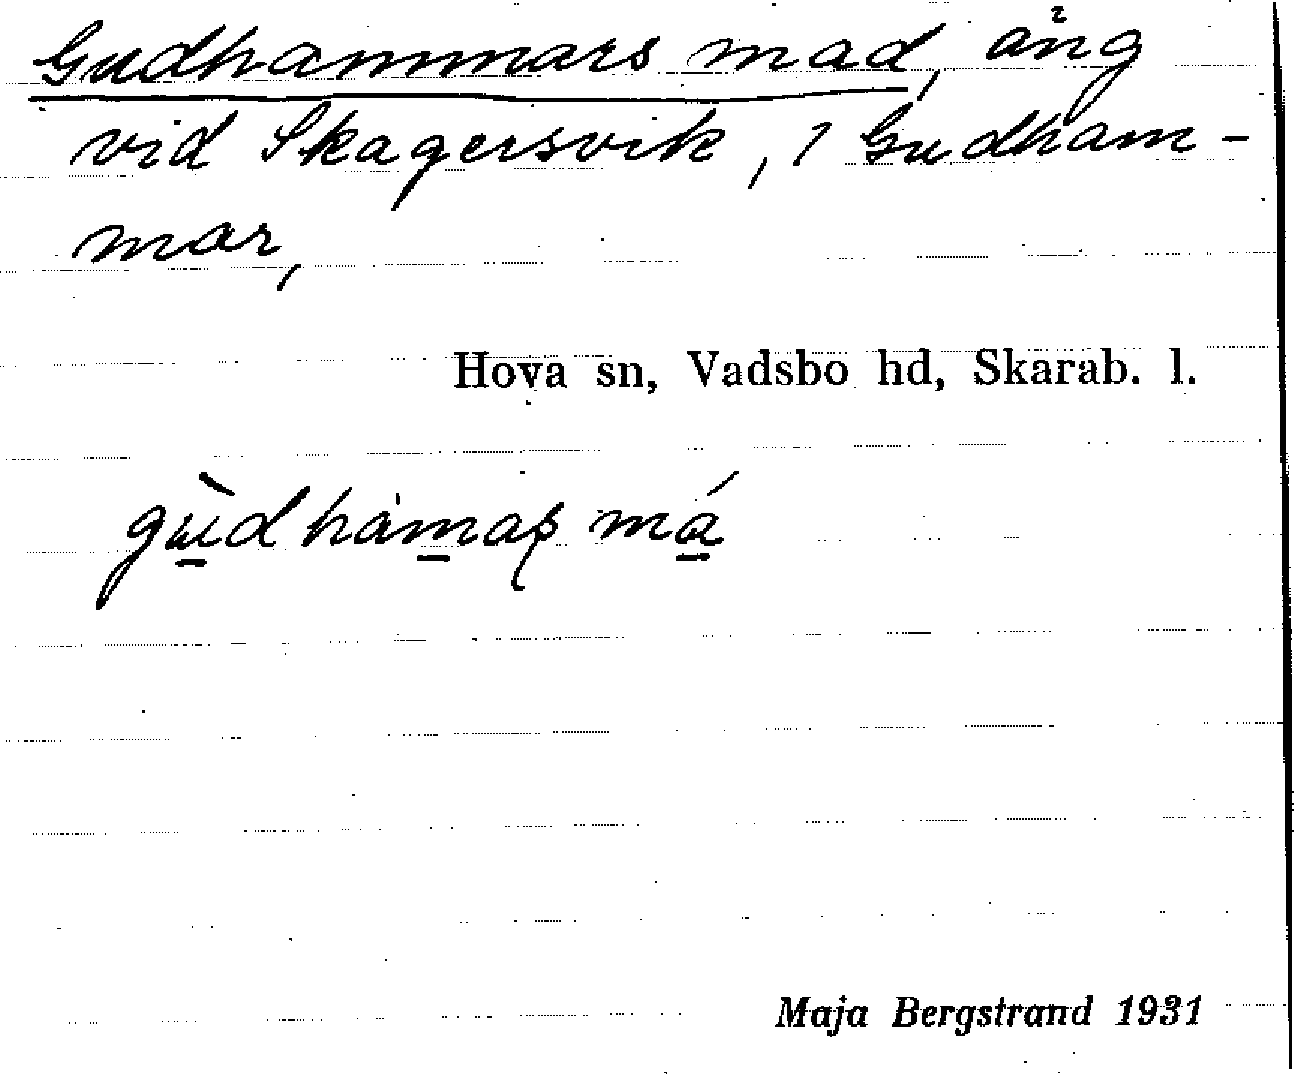 Gudhammars mad, äng
vid Skagersvik, 1 Gudham-
mar,
Hova sn, Vadsbo hd, Skarab. l.
gùdhàmaʂ má
Maja Bergstrand 1931